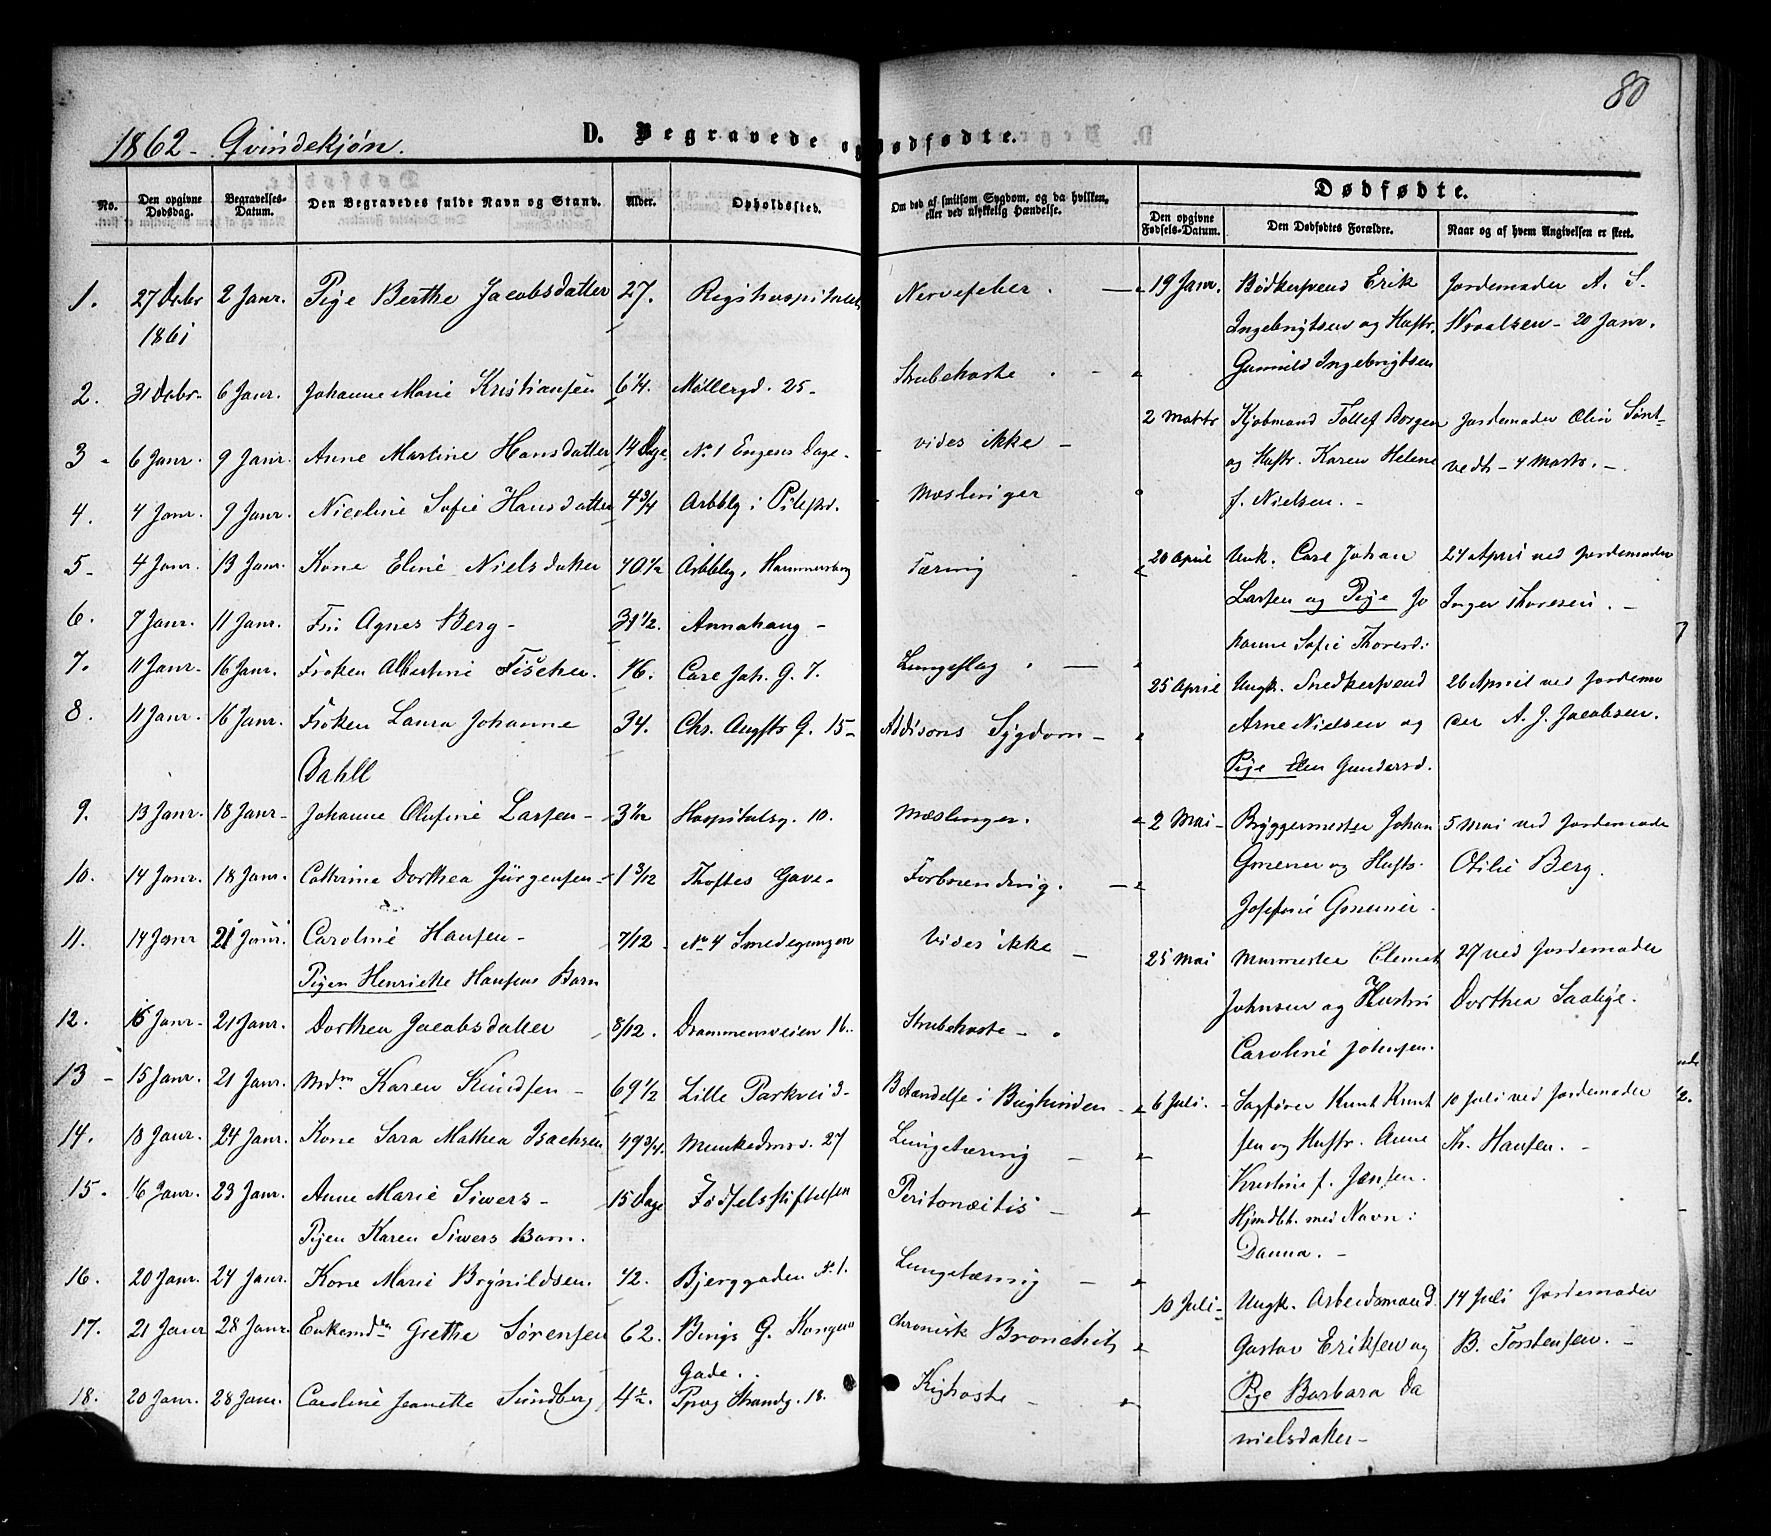 80
1862 - Qvindekjøn.
D. Begravede og Dødfødte.
No. Den opgivne Dødsdag. Begravelses-Datum. Den Begravedes fulde Navn og Stand. Alder. Opholdssted. Om død af smitsom Sygdom, og da hvilken, eller ved ulykkelig Hændelse.
Dødfødte.
Den opgivne Fødsels-Datum. Den Dødfødtes Forældre. Naar og af hvem Angivelsen er skeet.
1. 27 Decbr 1861 2 Janr. Pige Berthe Jacobsdatter 27. Rigshospitalet Nervefeber.
2. 31 Decbr 6 Janr. Johanne Marie Kristiansen 6 1/4. Møllergd. 25 - Strubehoste
3 - 6 Janr. 9 Janr. Anne Martine Hansdatter 14 Dge. No 1 Engens Dage - vides ikke -
4. 4 Janr. 9 Janr. Nicoline Sofie Hansdatter 4 3/4 Arbblg i Pilestd. Mæslinger
5 - 4 Janr. 13 Janr. Kone Eline Nielsdatter 40 1/2 Arbblg, Hammersborg Tæring
6. 7 Janr. 11 Janr. Agnes Berg - 31 1/2. Annahaug -
7. 11 Janr. 16 Janr. Frøken Albertine Fischer. 16. Carl Joh. G. 7. Lungeslag
8. 11 Janr. 16 Janr. Frøken Laura Johanne 34. Chr. Augsts G. 15 - Addisons Sygdom -
Dahll
9. 13 Janr. 18 Janr - Johanne Olufine Larsen - 3 1/12 Hospitalsg. 10. Mæslinger.
10. 14 Janr. 18 Janr. Cathrine Dorthea Jürgensen - 1 3/12 Thoftes Gave - Forbrænding.
11. 14 Janr 21 Janr. Caroline Hansen - 7/12 No 4 Smedegangen Vides ikke -
Pigen Henriette Hansens Barn
12. 15 Janr. 21 Janr. Dorthea Jacobsdatter 8/12. Drammensveien 16. Strubehoste -
13 - 15 Janr. 21 Janr. Mdm Karen Knudsen - 69 1/2 Lille Parkvei 3 - Betændelse i Bughinden -
14. 18 Janr. 24 Janr. Kone Sara Mathea Isachsen 49 3/4. Munkedmsv. 27 Lungetæring -
15. 16 Janr. 23 Janr. Anne Marie Siwers - 15 Dage Fødselsstiftelsen Peritonæitis -
Pigen Karen Siwers Barn.
16. 20 Janr. 24 Janr. Kone Marie Brynildsen. 42. Bjerggaden No 1. Lungetæring -
17. 21 Janr 28 Janr. Enkemdm Grethe Sørensen 62. Bings G. Kongens chronisk Bronchit
Gade.
18. 20 Janr. 28 Janr. Caroline Jeanette Sundberg 4 1/2. Pprvg Strandg. 18. Kighoste -
19 Janr. Bødkersvend Erik Jordemoder A. S.
Ingebrigtsen og Hustr. Wraalsen - 20 Janr.
Gunnild Ingebrigtsen
2 Marts Kjøbmand Tollef Borgen Jordemoder Elin Sønt-
og Hustr. Karen Helene vedt - 4 Marts. -
f. Nielsen. -
20 April Unk. Carl Johan 24 April ved Jordemoder
Larsen og Pige Jo Inger Thoresen. -
hanne Sofie Thoresd:
25 April Ungk. Snedkersvend 26 April ved Jordemo
Arne Nielsen og der A. J. Jacobsen.
Pige Elen Gundersd.
2 Mai - Bryggermester Johan 5 Mai ved Jordemoder
Gmeiner og Hustr. Otilie Berg.
Josefine Gmeiner.
25 Mai Murmester Clemet 27 ved Jordemoder
Johnsen og Hustru Dorthea Saalige.
Caroline Johnsen.
6 Juli. - Sagfører Knut Knut 10 Juli ved Jordemoder
sen og Hustr. Anne Th. Hansen. -
Kristine f. Jensen.
Hjmdbt. med Navn:
Danna. -
10 Juli - Ungk. Arbeidsmand 14 Juli Jordemoder
Gustav Eriksen og B. Torstensen. -
Pige Barbara Da
nielsdatter -